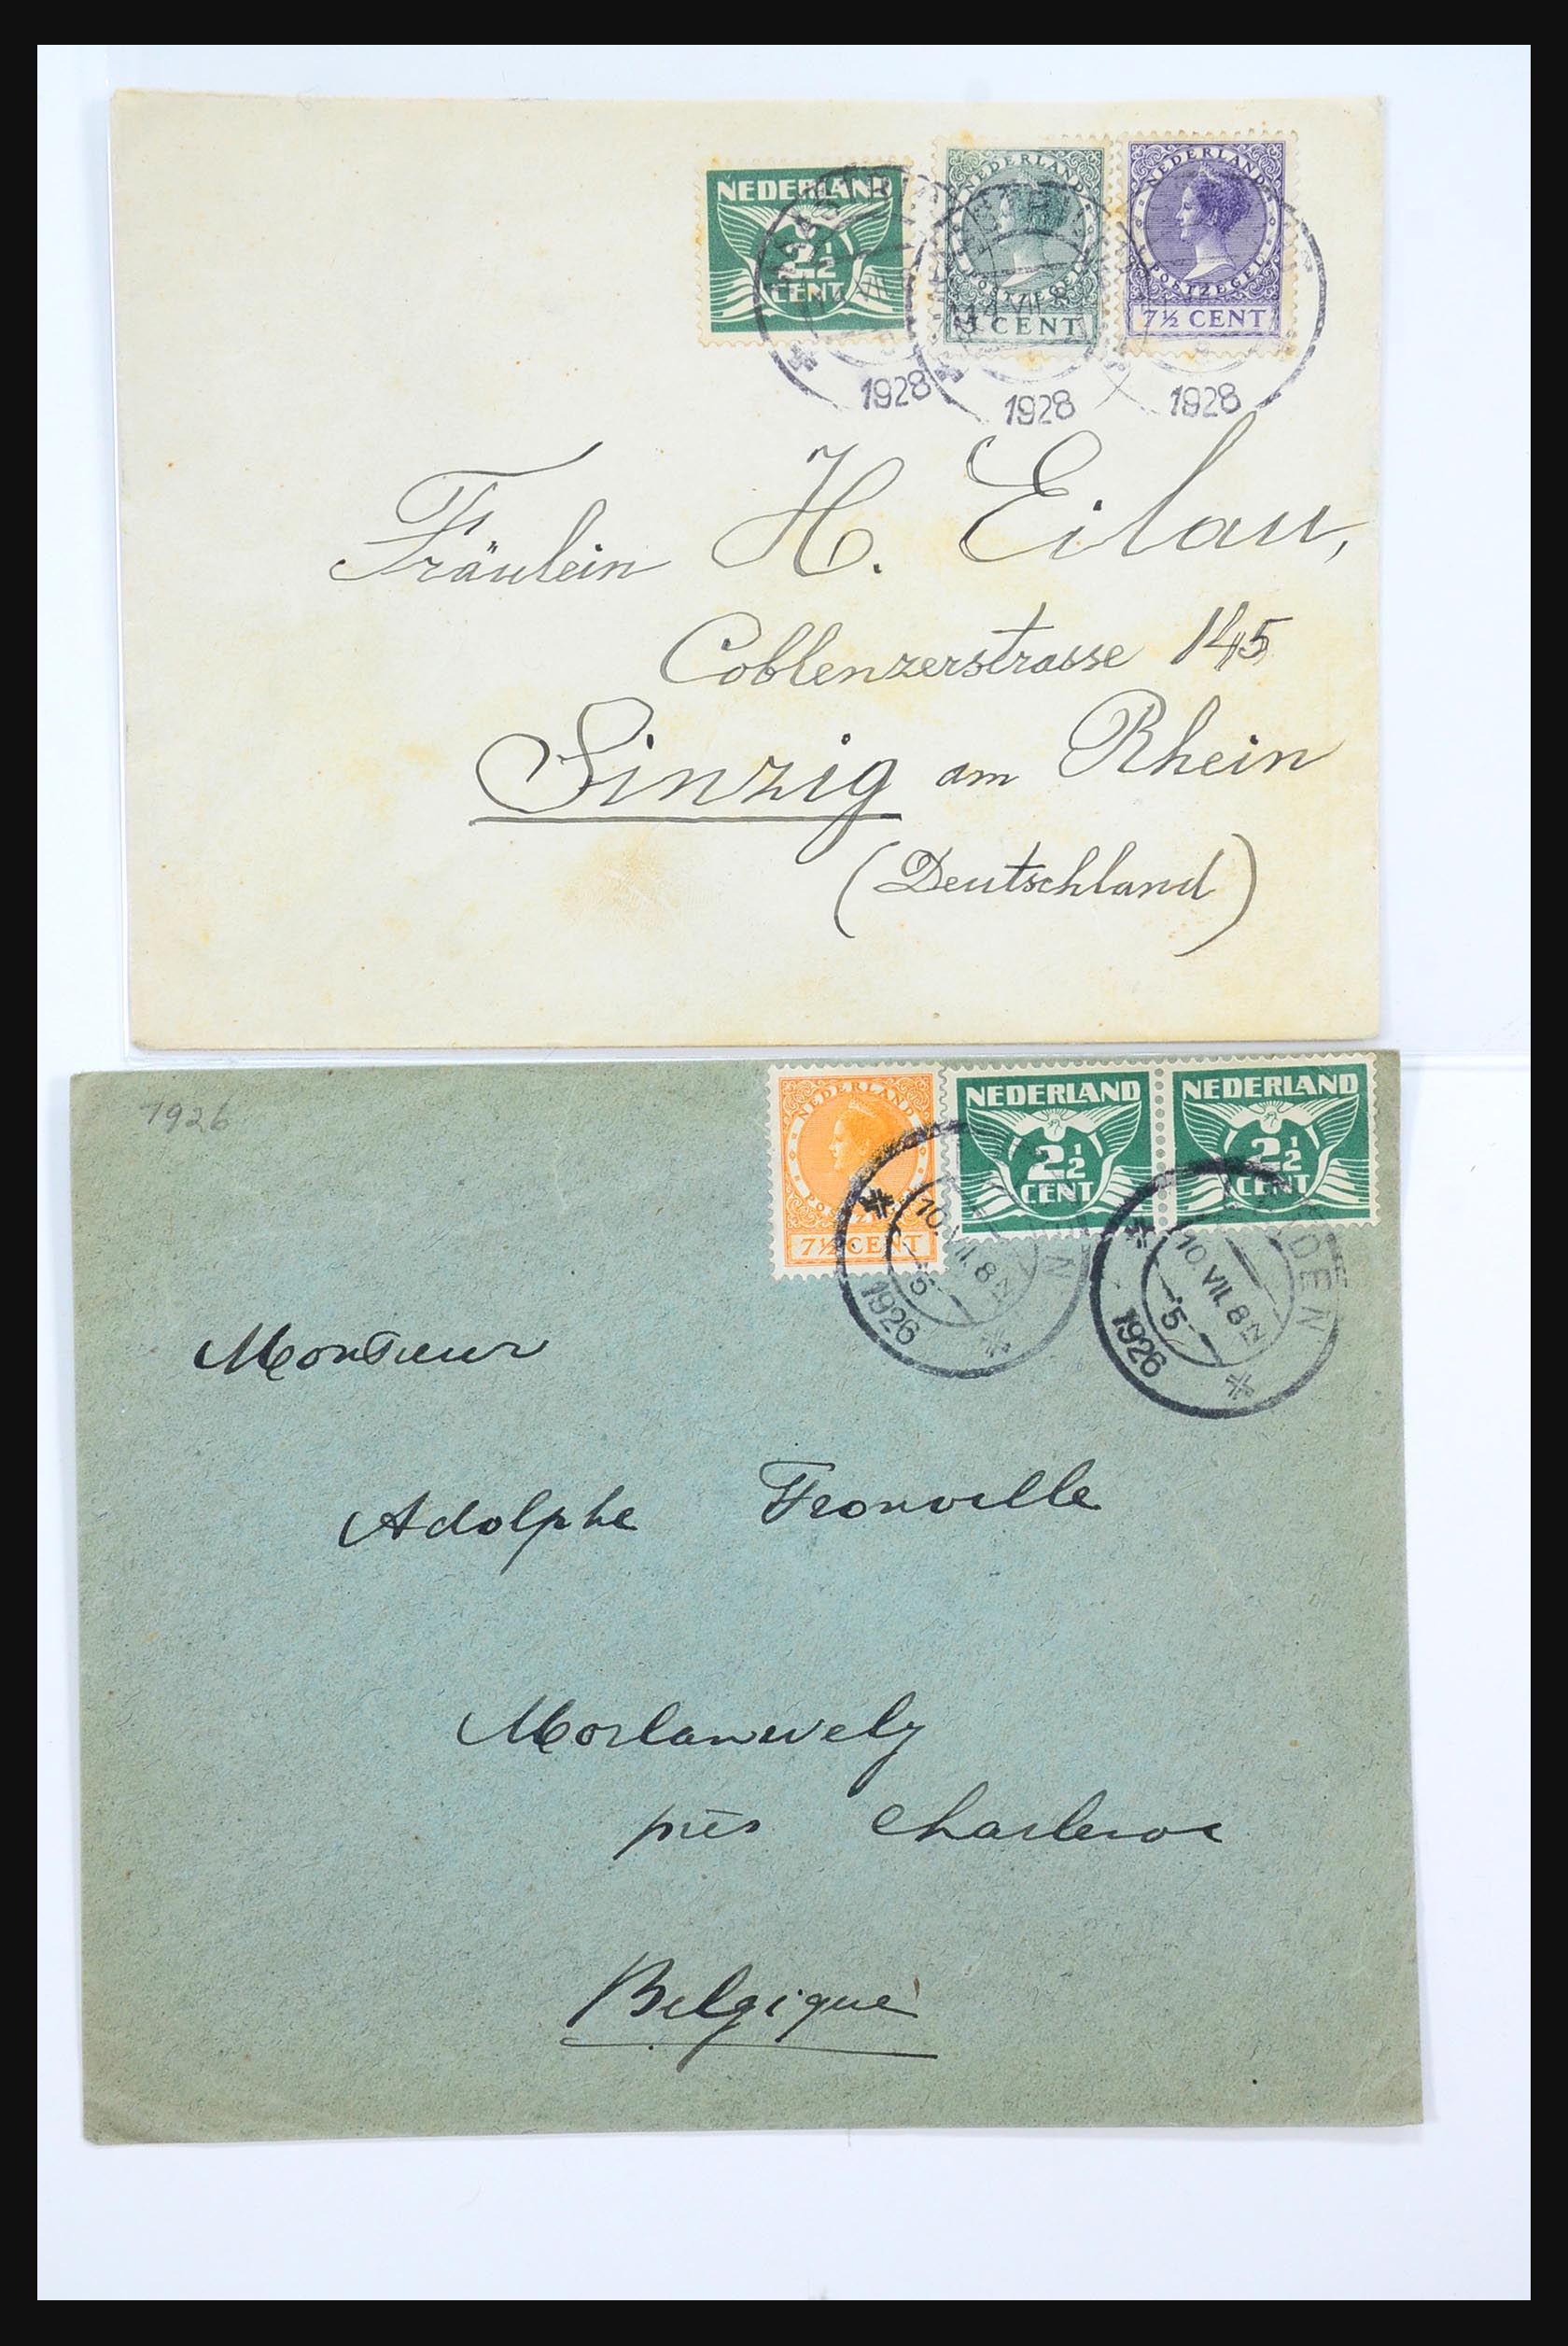 NEDERLAND
2½
CENT
NEDERLAND
POSTZEGEL
5 CENT
NEDERLAND
POSTZEGEL
7½ CENT
1928
1928
1928
Fräulein H. Eilau,
Coblenzerstrasse 145
Sinzig am Rhein
(Deutschland)
1926
NEDERLAND
7½ CENT
NEDERLAND
2½
CENT
NEDERLAND
2½
CENT
10.VII.8
5
1926
10.VII.8
5
1926
Monsieur
Adolphe Fronville
Morlanwely
près Charleroi
Belgique